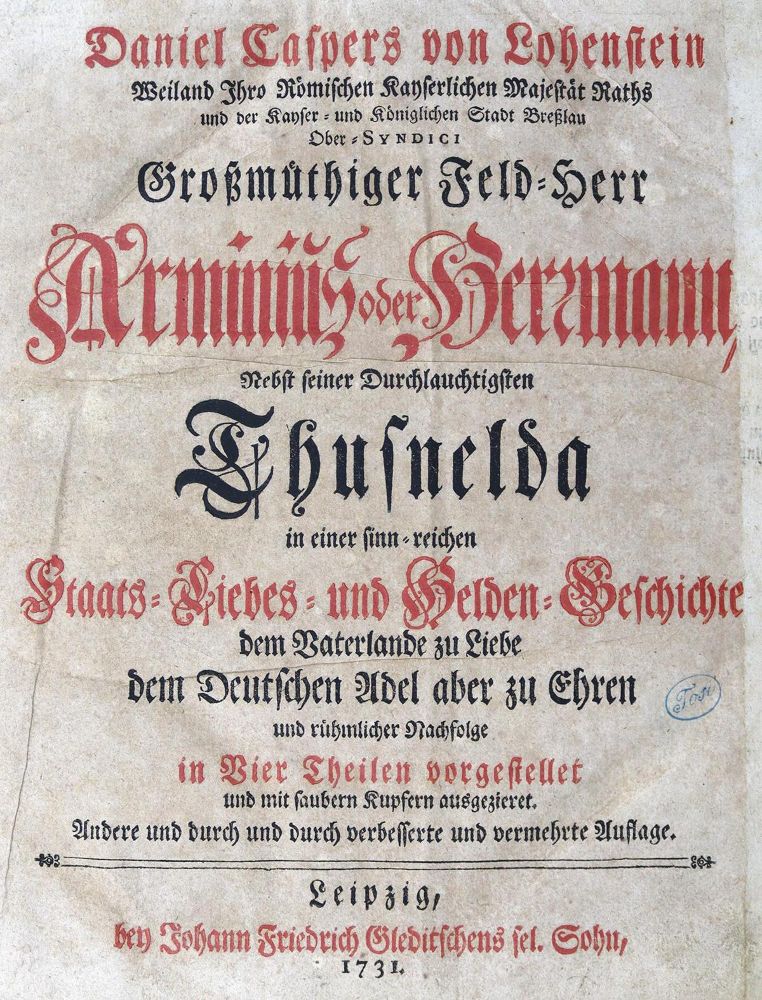 Daniel Caspers von Lohenstein
Weiland Ihro Römischen Kayserlichen Majestät Raths
und der Kayser- und Königlichen Stadt Breßlau
Ober-SYNDICI
Großmüthiger Feld-Herr
Arminius oder Herrmann,
Nebst seiner Durchlauchtigsten
Thusnelda
in einer sinn-reichen
Staats- Liebes- und Helden-Geschichte
dem Vaterlande zu Liebe
dem Deutschen Adel aber zu Ehren
und rühmlicher Nachfolge
in Vier Theilen vorgestellet
und mit saubern Kupfern ausgezieret.
Andere und durch und durch verbesserte und vermehrte Auflage.
Leipzig,
bey Johann Friedrich Gleditschens sel. Sohn,
1731.